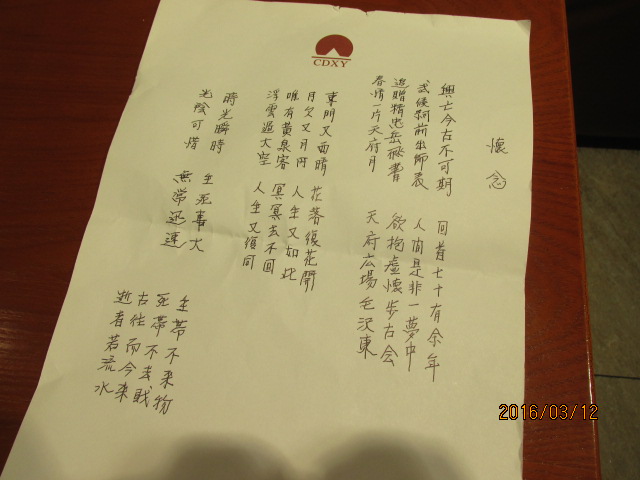 CDXY
懷念
興亡今古不可期 回首七十有余年
武侯祠前出師表 人間是非一夢中
追贈精忠岳飛書 欲抱虛懷步古会
春情一片天府月 天府広場毛沢東
東門又西晴 花落復花開
月欠又月円 人生又如此
唯有黃泉客 冥冥去不回
浮雲過太空 人生又復同
時光瞬時 生死事大
光陰可惜 無常迅速
生帯不来物
死帯不去財
古往而今来
逝者若流水
2016/03/12